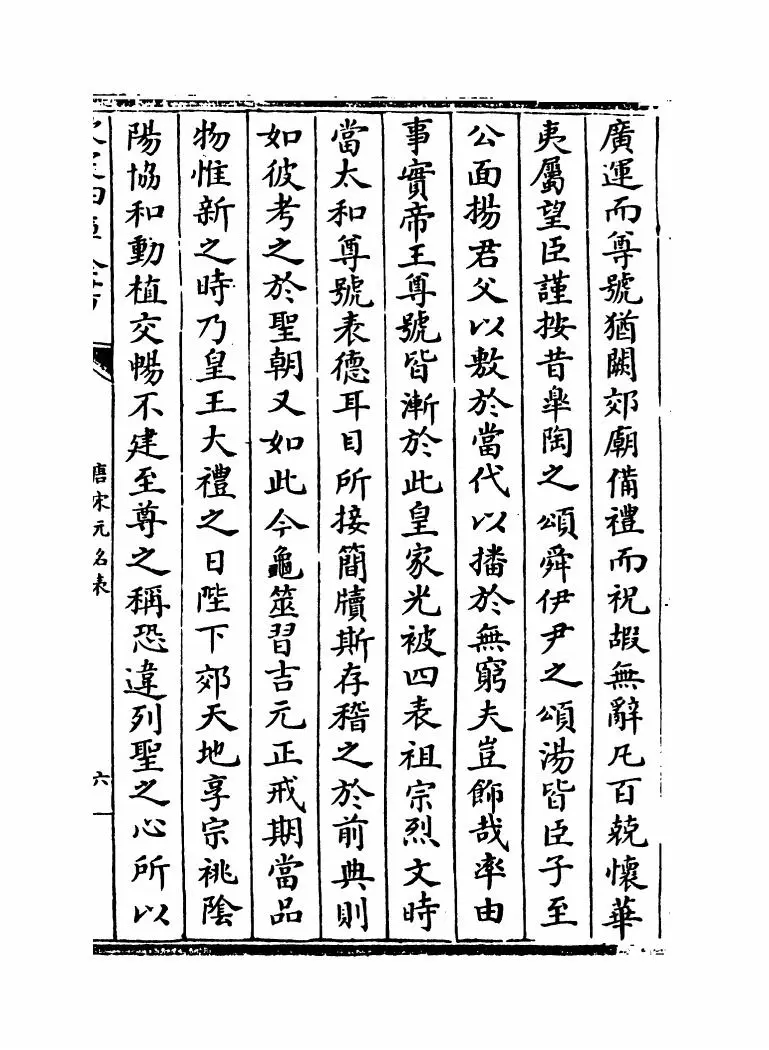 廣運而尊號猶闕郊廟備禮而祝嘏無辭凡百兢懷華
夷屬望臣謹按昔皐陶之頌舜伊尹之頌湯皆臣子至
公面揚君父以敷於當代以播於無窮夫豈飾哉率由
事實帝王尊號皆漸於此皇家光被四表祖宗烈文時
當太和尊號表德耳目所接簡牘斯存稽之於前典則
如彼考之於聖朝又如此今龜筮習吉元正戒期當品
物惟新之時乃皇王大禮之日陛下郊天地享宗祧陰
陽協和動植交暢不建至尊之稱恐違列聖之心所以
唐宋元名表
六